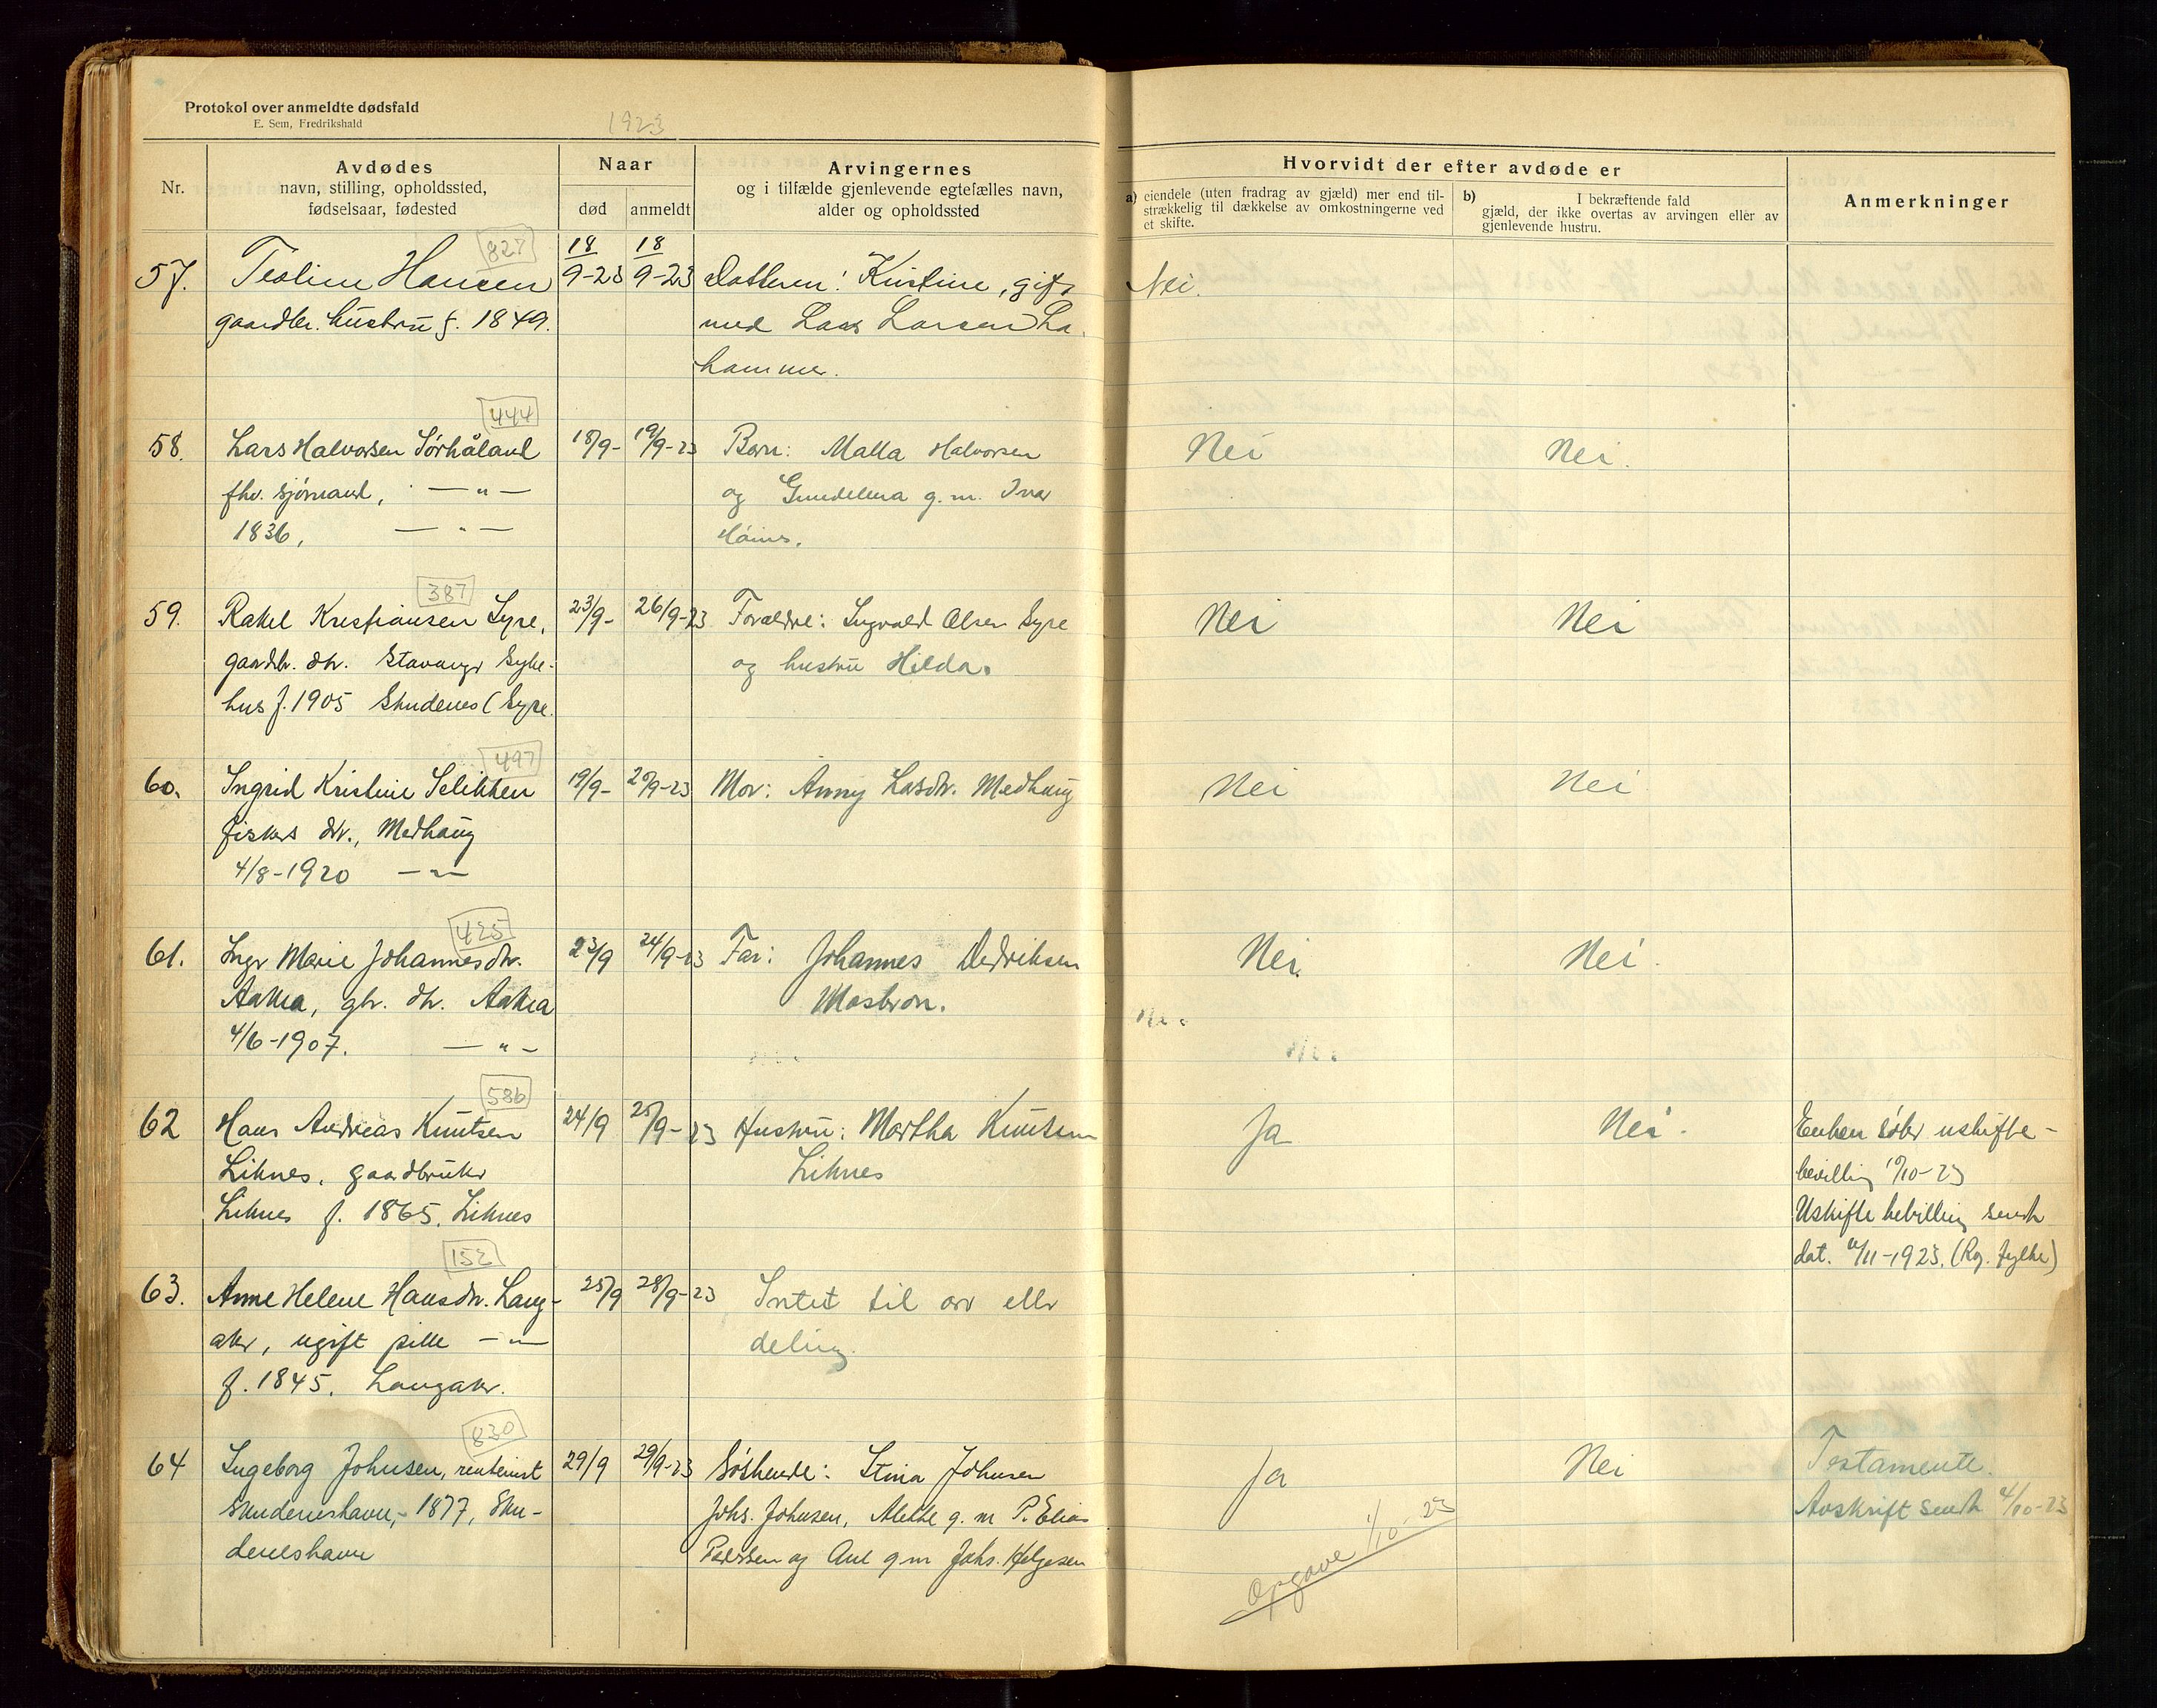 Protokol over anmeldte dødsfald
E. Sem, Fredrikshald
1923
Nr.
Avdødes
navn, stilling, opholdssted,
fødselsaar, fødested
Naar
død
anmeldt
Arvingernes
og i tilfælde gjenlevende egtefælles navn,
alder og opholdssted
Hvorvidt der efter avdøde er
a) eiendele (uten fradrag av gjæld) mer end til-
strækkelig til dækkelse av omkostningerne ved
et skifte.
b) I bekræftende fald
gjæld, der ikke overtas av arvingen eller av
gjenlevende hustru.
Anmerkninger
827
57. Teoline Hansen 18/9-23 18/9-23 Datteren: Kristine, gift Nei.
gaardbr. hustru f. 1849. med Lars Larsen
hammer.
444
58. Lars Halvorsen Sørhåland 18/9- 19/9-23 Børn: Malla Halvorsen Nei Nei.
fhv. sjømand, — " — og Gundelena g. m. Ivar
1836, — " —
387
59. Rakel Kristiansen Syre, 23/9- 26/9-23 Forældre: Ingvald Olsen Syre Nei Nei
gaardbr. dtr. Stavanger Syke- og hustru Hilda.
hus f. 1905 Skudenes (Syre.
497
60. Ingrid Kristine Selikken 19/9- 20/9-23 Mor: Anny Larsdtr. Medhaug Nei Nei
fiskers dtr., Medhaug
4/8-1920 — " —
425
61. Inger Marie Johannesdtr. 23/9 24/9-23 Far: Johannes Dedriksen Nei. Nei.
Aakra, gbr. dtr. Aakra Mosbron.
4/6-1907. — " —
586
62 Hans Andreas Knutsen 24/9 25/9-23 Hustru: Martha Knutsen Ja Nei. Enken søker uskifte-
Liknes, gaardbruker Liknes bevilling 10/10-23
Liknes f. 1865. Liknes Uskifte bevilling sendt
dat. /11-1923. (Rog. fylke)
152
63. Anne Helene Hansdtr. Lang- 25/9 28/9-23 Intet til arv eller
aker, ugift pike — " — deling.
f. 1845. Langaker.
830
64 Ingeborg Johnsen, rentenist 29/9 29/9-23 Søskende: Stina Johnsen Ja Nei Testamente.
Skudeneshavn, - 1877, Sku- Johs. Johnsen, Alethe g. m P. Elias Avskrift sendt 4/10-23
deneshavn Pedersen og Ane g m Johs. Helgesen
Opgave 1/10-23